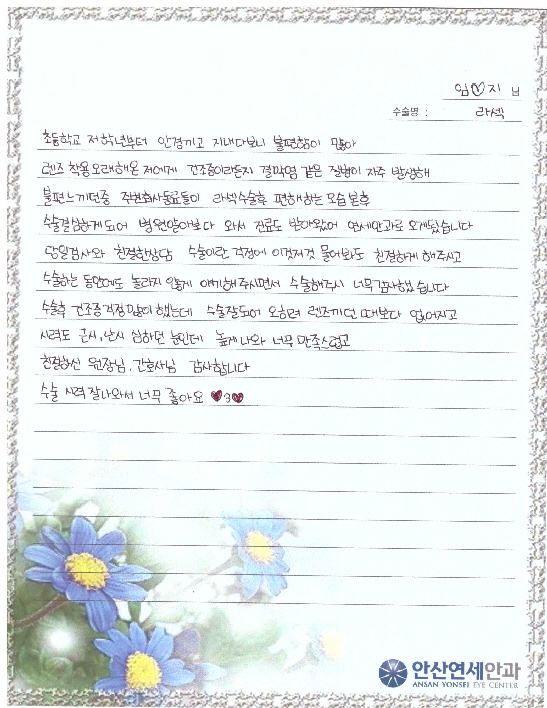 임♡지 님
수술명 : 라섹
초등학교 저학년부터 안경끼고 지내다보니 불편함이 많아
렌즈 착용 오래해온 저에게 건조증이라든지 결막염 같은 질병이 자주 발생해
불편느끼던중 주변회사동료들이 라섹수술후 편해하는 모습 본후
수술결심하게되어 병원알아보다 와서 진료도 받아왔었어 연세안과로 오게됬습니다
당일검사와 친절한상담 수술이란 걱정에 이것저것 물어봐도 친절하게 해주시고
수술하는 동안에도 놀라지 않게 얘기해주시면서 수술해주시 너무감사했습니다
수술후 건조증걱정많이 했는데 수술잘되어 오히려 렌즈끼던 때보다 없어지고
시력도 근시,난시 심하던 눈인데 높게 나와 너무 만족스럽고
친절하신 원장님, 간호사님 감사합니다
수술 시력 잘나와서 너무 좋아요 ♥3♥
안산연세안과
ANSAN YONSEI EYE CENTER